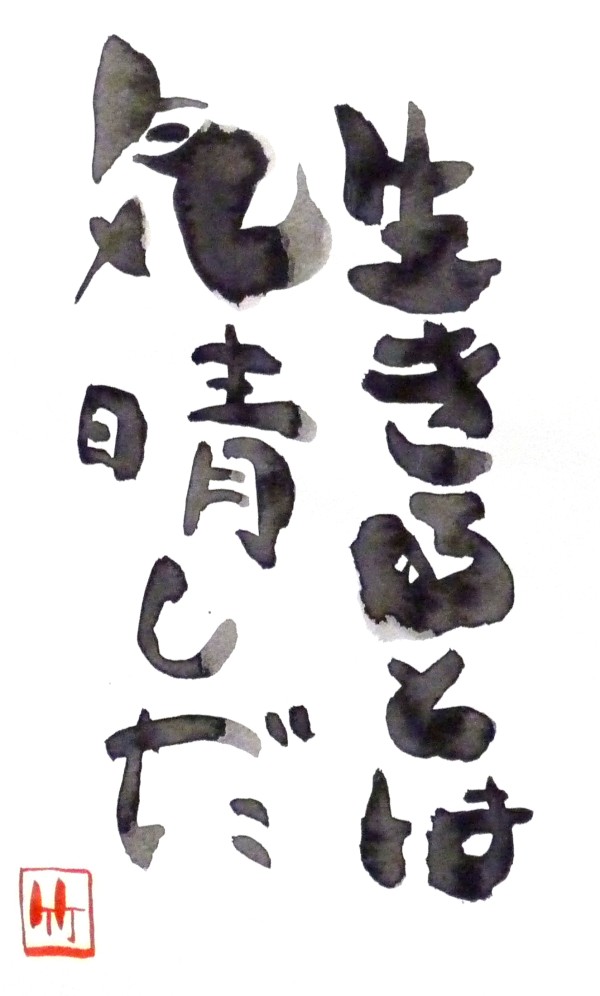 生きるとは
気晴しだ